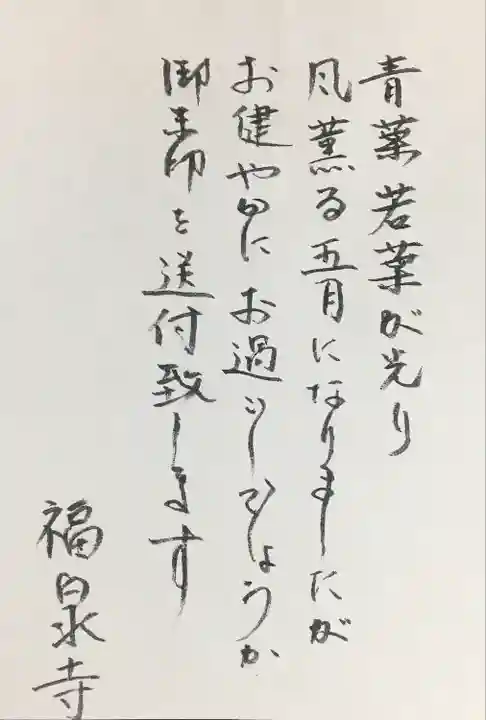 青葉若葉が光り
風薫る五月になりましたが
お健やかにお過ごしでしょうか
御朱印を送付致します
福泉寺